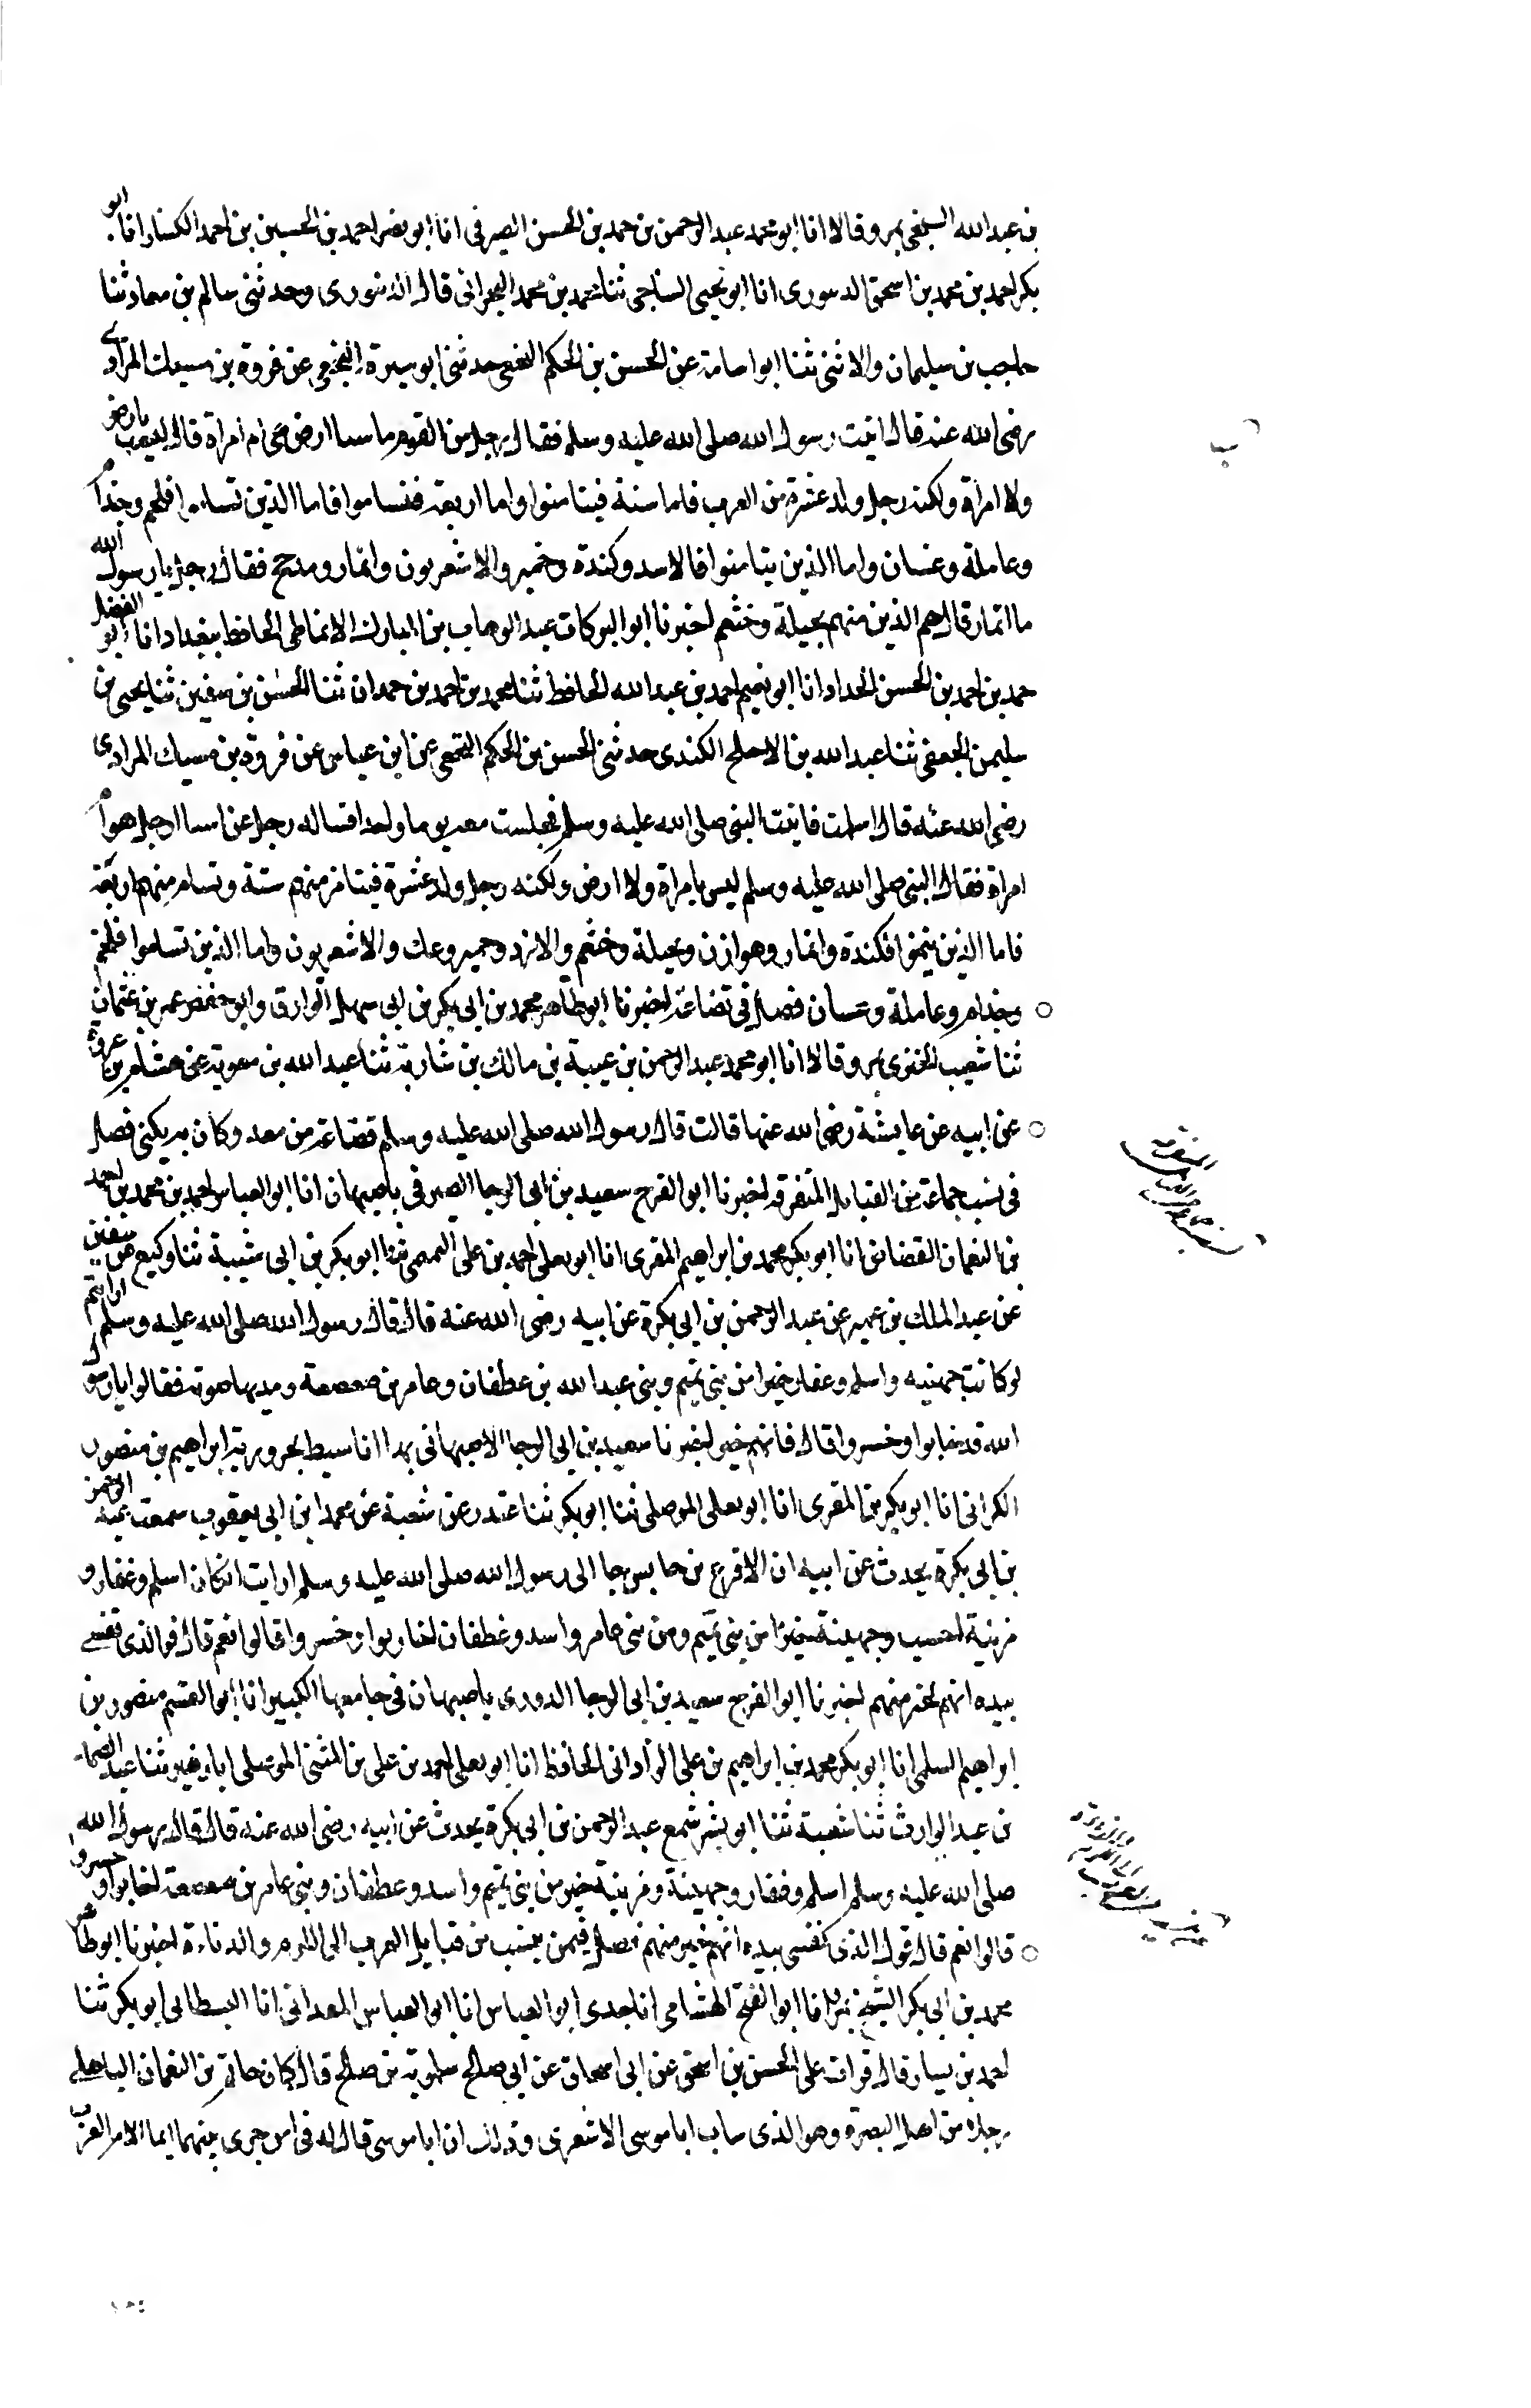 بن عبدالله السبخى بمرو قالا انا ابو محمد عبد الرحمن بن حمد بن الحسن الصيرفى انا ابو نصر احمد بن الحسين بن احمد الكسار انا ابو
بكر احمد بن محمد بن اسحق الدينورى انا ابو يحيى الساجى ثنا محمد بن محمد البحرانى قال الدينورى وحدثنى سالم بن معاذ ثنا
حاجب بن سليمان والاثنى ثنا ابو اسامة عن الحسن بن الحكم النخعى حدثنى ابو سبرة النخعى عن فروة بن مسيك المرادى
رضى الله عنه قال اتيت رسول الله صلى الله عليه وسلم فقال رجل من القوم ما سبا ارض هى ام امراة قال ليست بارض
ولا امرأة ولكنه رجل ولد عشرة من العرب فاما ستة فيتامنوا واما اربعة فتشاموا فاما الذين تشاءموا فلخم وجذام
وعاملة وغسان واما الذين يتامنوا فالاسد وكندة وحمير والاشعريون وانمار ومذحج فقال رجل يا رسول الله
ما انمار قال هم الذين منهم بجيلة وخثعم اخبرنا ابو البركات عبد الوهاب بن المبارك الانماطى الحافظ ببغداد انا ابو الفضل
حمد بن احمد بن الحسن الحداد انا ابو نعيم احمد بن عبد الله الحافظ ثنا محمد بن احمد بن حمدان ثنا الحسن بن سفين ثنا يحيى بن
سليمن الجعفى ثنا عبد الله بن الاجلح الكندى حدثنى الحسن بن الحكم النخعى عن ابن عباس عن فروة بن مسيك المرادى
رضى الله عنه قال اسلمت فاتيت النبى صلى الله عليه وسلم فجلست معه يوما واحدا فساله رجل عن سبا ارجل هو ام
امراة فقال النبى صلى الله عليه وسلم ليس بامراة ولا ارض ولكنه رجل ولد عشرة فيتامن منهم ستة وتشام منهم اربعة
فاما الذين تيمنوا فكندة وانمار وهوازن وبجيلة وخثعم والازد وحمير وعك والاشعريون واما الذين تشاموا فلخم
وجذام وعاملة وغسان فصل فى قضاعة اخبرنا ابو طاهر محمد بن ابى بكر بن ابى سهل الوارق وابو حفص عمر بن عثمان
ثنا شعيب الجنزى بمرو قالا انا ابو محمد عبد الرحمن بن عيبة بن مالك بن شاربة ثنا عبد الله بن معوية عن هشام بن عروة
عن ابيه عن عايشة رضى الله عنها قالت قال رسول الله صلى الله عليه وسلم قضاعة من معد وكان به يكنى فصل
فى نسب جماعة من القبايل المتفرقة اخبرنا ابو الفرج سعيد بن ابى الرجا الصيرفى باصبهان انا ابو العباس احمد بن محمد بن احمد
بن النعمان القضاض انا ابو بكر محمد بن ابراهيم المقرى انا ابو يعلى احمد بن على التميمى ثنا ابو بكر بن ابى شيبة ثنا وكيع عن سفين
عن عبد الملك بن عمير عن عبد الرحمن بن ابى بكرة عن ابيه رضى الله عنه قال قال رسول الله صلى الله عليه وسلم ارايتم
لو كانت جهينه واسلم وغفار خيرا من بنى تميم وبنى عبد الله بن غطفان وعامر بن صعصعة ومد بها صوته فقالوا يا رسول
الله قد خابوا وخسروا قال فانهم خير اخبرنا سعيد بن ابى الرجا الاصبهانى بها انا سبط بحرويه ابراهيم بن منصور
الكرانى انا ابو بكر بن المقرى انا ابو يعلى الموصلى ثنا ابو بكر ثنا غندر عن شعبة عن محمد ابن ابى يعقوب سمعت عبد الرحمن
بن ابى بكرة يحدث عن ابيه ان الاقرع بن حابس جا الى رسول الله صلى الله عليه وسلم ارايت ان كان اسلم وغفار و
مزينة احسب وجهينة خيرا من بنى تميم ومن بنى عامر واسد وغطفان اخابوا وخسروا قالوا نعم قال فوالذى نفسى
بيده انهم لخير منهم اخبرنا ابو الفرج سعيد بن ابى الرجا الدورى باصبهان فى جامعها الكبير انا ابو القسم منصور بن
ابراهيم السلمى انا ابو بكر محمد بن ابراهيم بن على الزاذانى الحافظ انا ابو يعلى احمد بن على بن المثنى الموصلى ابا زهير ثنا عبد الصمد
بن عبد الوارث ثنا شعبة ثنا ابو بشر سمع عبد الرحمن بن ابى بكرة يحدث عن ابيه رضى الله عنه قال قال رسول الله
صلى الله عليه وسلم اسلم وغفار وجهينة ومزينة خير من بنى تميم واسد وغطفان وبنى عامر بن صعصعة اخابوا وخسروا
قالوا نعم قال فوالذى نفسى بيده انهم خير منهم فصل فيمن ينسب من قبايل العرب الى اللوم والدناءة اخبرنا ابو طاهر
محمد بن ابى بكر السبخى انا ابو الفتح الهشامى انا جدى ابو العباس انا ابو العباس المعدانى انا البسطامى ابو بكر ثنا
احمد بن سيار قال قرات على الحسن بن اسحق عن ابى اسحاق عن ابى صالح سلموية بن صالح قال كان حاتم بن النعمان الباهلى
رجلا من اهل البصرة وهو الذى ساب ابا موسى الاشعرى وذلك ان ابا موسى قال له فى امر جرى بينهما ايما الامر العرب
ب